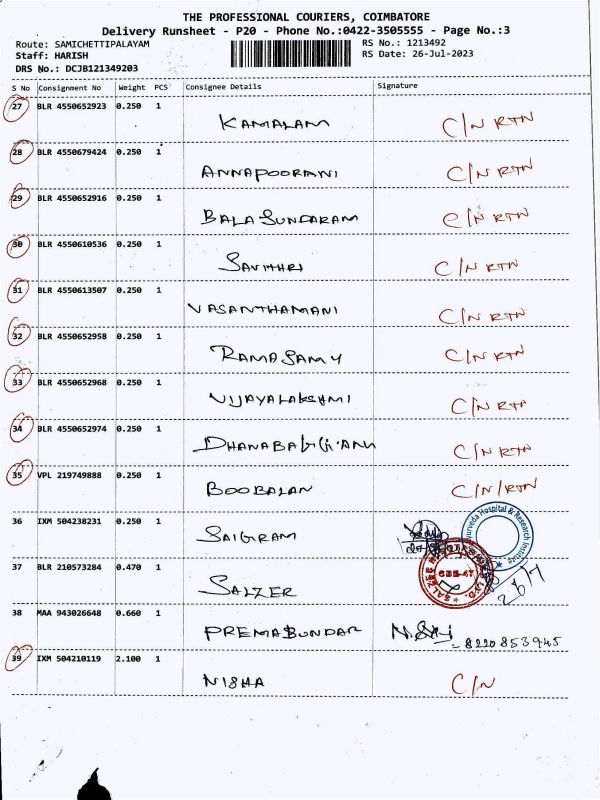 THE PROFESSIONAL COURIERS, COIMBATORE
Delivery Runsheet - P20 - Phone No.:0422-3505555 - Page No.:3
Route: SAMICHETTIPALAYAM RS No.: 1213492
Staff: HARISH RS Date: 26-Jul-2023
DRS No.: DCJB121349203
S No Consignment No Weight PCS Consignee Details Signature
27 BLR 4550652923 0.250 1 KAMALAM C/N RTN
28 BLR 4550679424 0.250 1 ANNAPOORANI C/N RTN
29 BLR 4550652916 0.250 1 BALA SUNDARAM C/N RTN
30 BLR 4550610536 0.250 1 SAVITHRI C/N RTN
31 BLR 4550613507 0.250 1 VASANTHAMANI C/N RTN
32 BLR 4550652958 0.250 1 RAMASAMY C/N RTN
33 BLR 4550652968 0.250 1 VIJAYALAKSHMI C/N RTN
34 BLR 4550652974 0.250 1 C/N RTN
35 VPL 219749888 0.250 1 BOOBALAN C/N/RTN
36 IXM 504238231 0.250 1 SAIGRAM Ayurveda Hospital & Research Institute
37 BLR 210573284 0.470 1 SALZER SALZER 26/7
38 MAA 943026648 0.660 1 PREMASUNDAR N. 8220853945
39 IXM 504210119 2.100 1 NISHA C/N